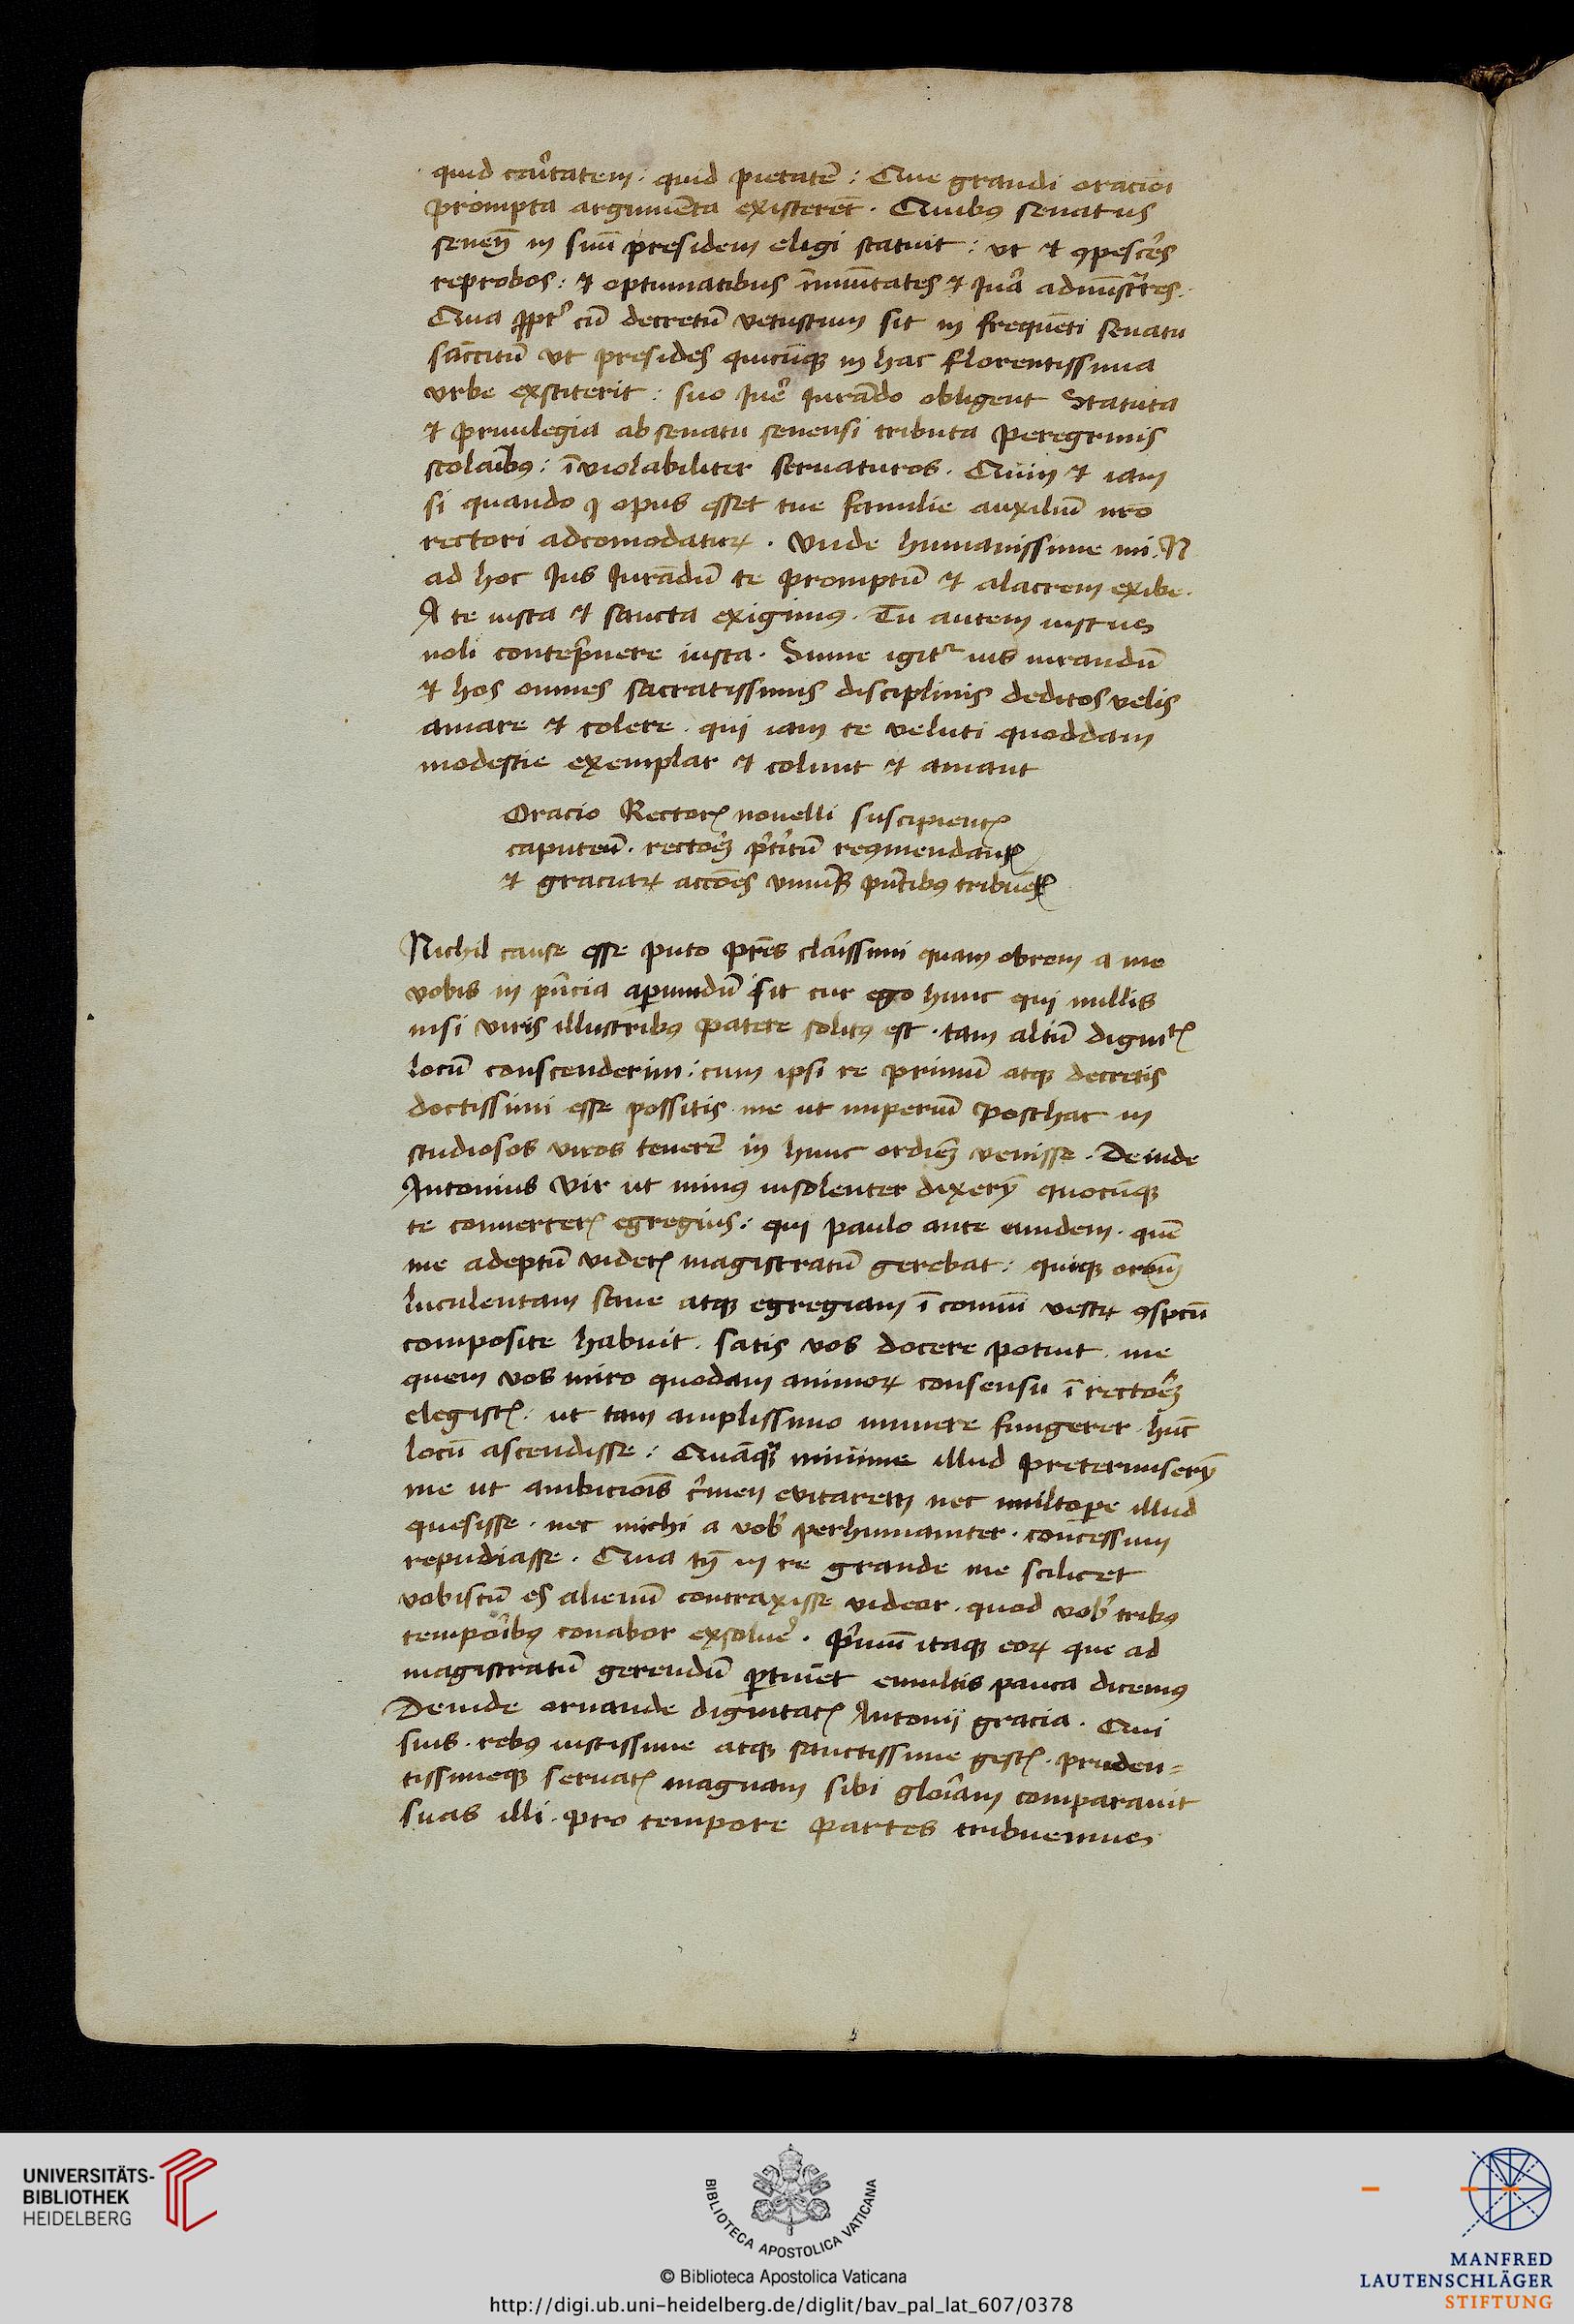 quid caritatem: quid pietatē: Que grandi oracioi
prompta argumēta existerēt. Quibꝯ senatus
seneñ in suū presidem eligi statuit: ut et ꝯpesceres
reprobos: et optimatibus īmūitates et iura admīstrares.
Qua ꝓpter cū decretū vetustum sit in frequēti senatu
sāccitū ut presides quicūqꝫ in hac florentissima
urbe exstiterit: suo iure iurādo obligent Statuta
et priuilegia ab senatu senensi tributa peregrinis
scolaribꝯ: īviolabiliter seruaturos. Quin et iam
si quando opus esset tue familie auxiliū nrō
rectori adcomodaturꝝ. Vnde humanissime mi. N
ad hoc Ius Iurādū te promptū et alacrem exibe.
A te iusta et sancta exigimꝯ. Tu autem iustus
noli contēpnere iusta. Sume igitur ius iurandū
et hos omnes sacratissimis disciplinis deditos velis
amare et colere. qui iam te veluti quoddam
modestie exemplar et colunt et amant
Oracio Rectorꝭ nouelli suscipientꝭ
caputeū. rectorē pteritū reꝯmendantꝭ
et graciarꝝ accōes uniuers pntibꝯ tribuētꝭ
Nichil cause esse puto pres clarissimi quam obrem a me
vobis in pncia aperiundū sit cur ego hunc qui nullis
nisi viris illustribꝯ patere solitꝯ est. tam altū dignitꝭ
locū conscenderim: cum ipsi re primū atqꝫ decretis
doctissimi esse possitis me ut imperiū posthac in
studiosos viros tenerē in hunc ordiē venisse. Deinde
Antonius vir ut minꝯ insolenter dixerȳ quocūqꝫ
te converterꝭ egregius: qui paulo ante eundem. quē
me adeptū videtꝭ magistratū gerebat: quiqꝫ orōm
luculentam sane atqꝫ egregiam ī comuni vestrꝝ ꝯspcū
composite habuit. satis vos docere potuit. me
quem vos miro quodam animorꝝ consensu ī rectorē
elegistꝭ: ut tam amplissimo munere fungerer hūc
locū ascendisse: Quāqꝫ minime illud pretermiserȳ
me ut ambiciois crimen evitarem nec multopere illud
quesisse. nec michi a vob perhumaniter. concessum
repudiasse. Qua tn̄ in re grande me scilicet
vobiscū es alienū contraxisse videor. quod vob tribꝯ
temporibꝯ conabor exsoluere. Primū itaqꝫ eorꝝ que ad
magistratū gerendū pertinēt emultis pauca dicemꝯ
Deinde ornande dignitatꝭ Antonii gracia. Qui
suis. rebꝯ iustissime atqꝫ sanctissime gestꝭ. pruden=
tissimeqꝫ seruatꝭ magnam sibi gloriam comparauit
suas illi. pro tempore partes tribuemus
UNIVERSITÄTS-
BIBLIOTHEK
HEIDELBERG
BIBLIOTECA APOSTOLICA VATICANA
© Biblioteca Apostolica Vaticana
http://digi.ub.uni-heidelberg.de/diglit/bav_pal_lat_607/0378
MANFRED
LAUTENSCHLÄGER
STIFTUNG